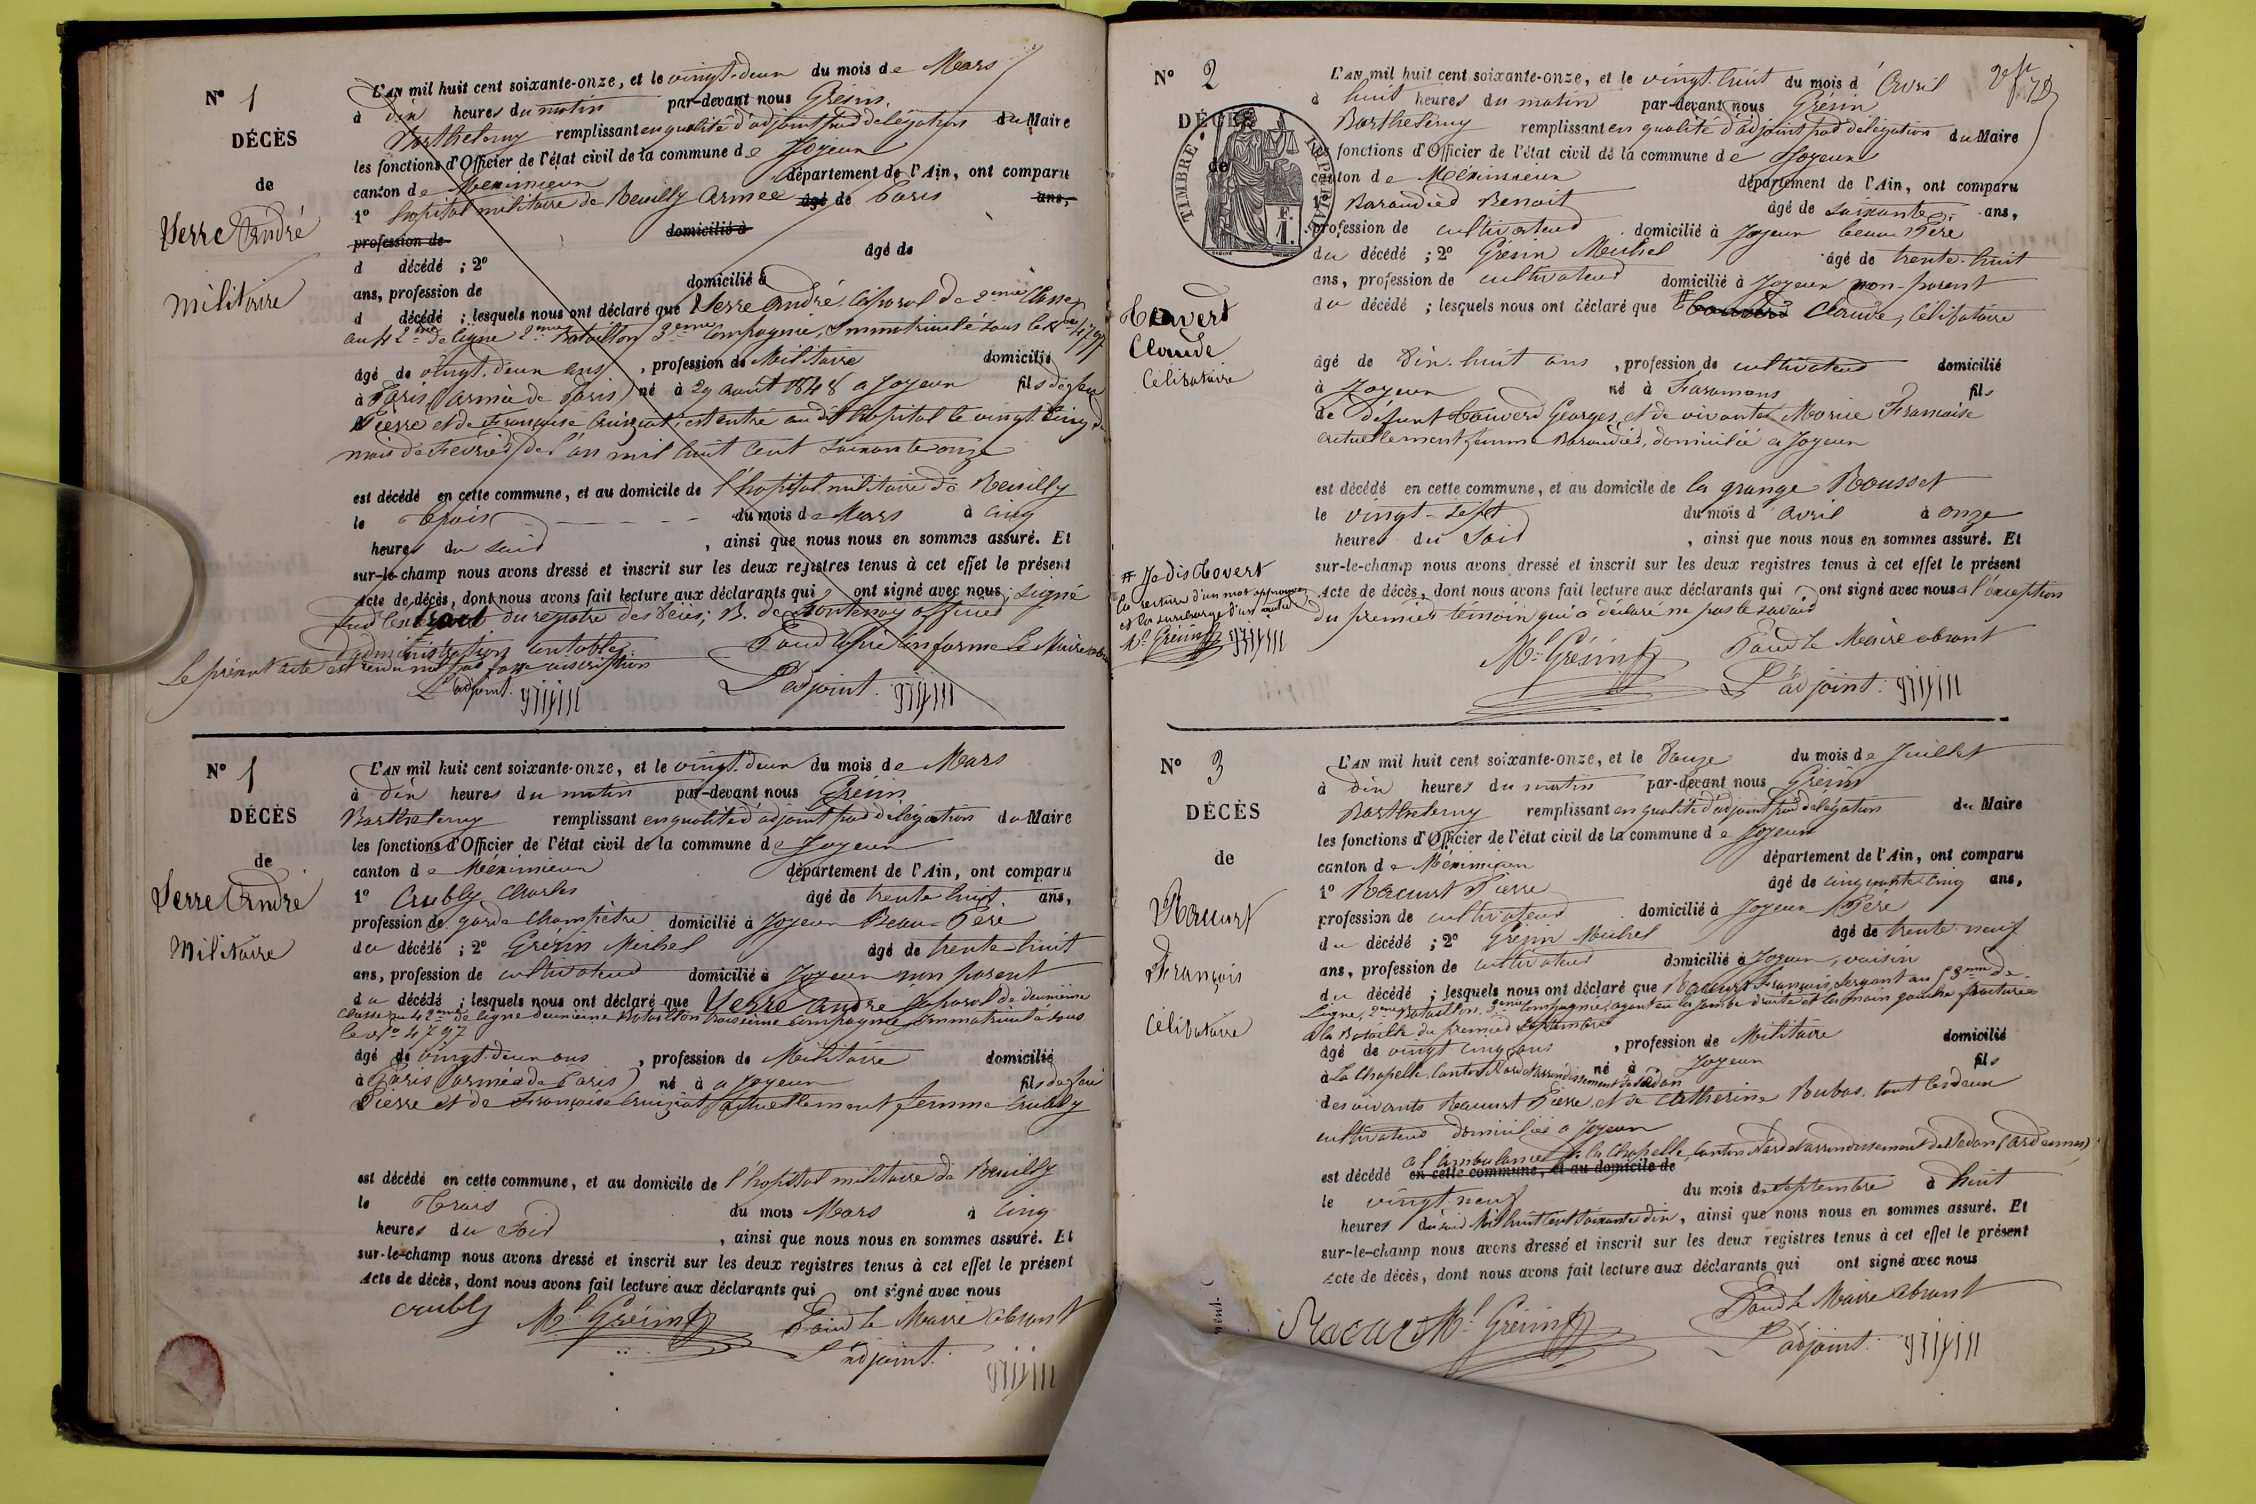 N° 1
DÉCÈS
de
Serre André
militaire
L'AN mil huit cent soixante-onze, et le vingt-deux du mois de Mars
à dix heures du matin par-devant nous Grésin
Barthelemy remplissant en qualité d'adjoint par délégation du Maire
les fonctions d'Officier de l'état civil de la commune de Joyeux
canton de Méximieux département de l'Ain, ont comparu
1° hopital militaire de Reuilly Armée âgé de Paris ans,
profession de domicilié à
d décédé ; 2° âgé de
ans, profession de domicilié à
d décédé ; lesquels nous ont déclaré que Serre André Caporal de 2ème Classe
au 42me de ligne 2eme Bataillon 3eme Compagnie, immatriculé sous le N° 4797
âgé de vingt-deux ans, profession de Militaire domicilié
à Paris (armée de Paris) né à 29 août 1848 a Joyeux fils de feu
Pierre et de Françoise Cruiziat; est entré au dit hopital le vingt-cinq du
mois de Fevrier de l'an mil huit cent soixante onze
est décédé en cette commune, et au domicile de l'hopital militaire de Reuilly
le trois du mois de Mars à cinq
heures du soir, ainsi que nous nous en sommes assuré. Et
sur-le-champ nous avons dressé et inscrit sur les deux registres tenus à cet effet le présent
Acte de décès, dont nous avons fait lecture aux déclarants qui ont signé avec nous signé
du registre des décès; B. de officier
d'administration comptable. Pour copie conforme Le Maire absent
Le présent acte est rendu nul par fausse inscription
L'adjoint. L'adjoint.
N° 1
DÉCÈS
de
Serre André
Militaire
L'AN mil huit cent soixante-onze, et le vingt-deux du mois de Mars
à dix heures du matin par-devant nous Grésin
Barthelemy remplissant en qualité d'adjoint par délégation du Maire
les fonctions d'Officier de l'état civil de la commune de Joyeux
canton de Méximieux département de l'Ain, ont comparu
1° Crubly Charles âgé de trente huit ans,
profession de garde Champêtre domicilié à Joyeux Beau-Père
du décédé ; 2° Grésin Michel âgé de trente-huit
ans, profession de cultivateur domicilié à Joyeux non parent
du décédé ; lesquels nous ont déclaré que Serre André Caporal de deuxieme
Classe au 42eme de ligne deuxième Bataillon troisième compagnie immatriculé sous
le N° 4797
âgé de vingt-deux ans, profession de Militaire domicilié
à Paris (armée de Paris) né à a Joyeux fils de feu
Pierre et de Françoise Cruiziat actuellement femme Crubly
est décédé en cette commune, et au domicile de l'hopital militaire de Reuilly
le Trois du mois Mars à cinq
heures du soir, ainsi que nous nous en sommes assuré. Et
sur-le-champ nous avons dressé et inscrit sur les deux registres tenus à cet effet le présent
Acte de décès, dont nous avons fait lecture aux déclarants qui ont signé avec nous
Crubly Ml Grésin Pour le Maire absent
L'adjoint.
N° 2
DÉCÈS
de
TIMBRE IMPÉRIAL
F.
1.
Covert
Claude
Célibataire
L'AN mil huit cent soixante-onze, et le vingt-huit du mois d'Avril
à huit heures du matin par-devant nous Grésin
Barthelemy remplissant en qualité d'adjoint par délégation du Maire
les fonctions d'Officier de l'état civil de la commune de Joyeux
canton de Méximieux département de l'Ain, ont comparu
1° Baraudier Benoit âgé de soixante ans,
profession de cultivateur domicilié à Joyeux beau-Père
du décédé ; 2° Grésin Michel âgé de trente-huit
ans, profession de cultivateur domicilié à Joyeux non-parent
du décédé ; lesquels nous ont déclaré que Claude, Célibataire
âgé de dix-huit ans, profession de cultivateur domicilié
à Joyeux né à Faramans fils
de défunt Couvert Georges et de vivante Morice Francoise
actuellement femme Baraudier, domicilié a Joyeux
est décédé en cette commune, et au domicile de la grange Rousset
le vingt-sept du mois d'avril à onze
heures du soir, ainsi que nous nous en sommes assuré. Et
sur-le-champ nous avons dressé et inscrit sur les deux registres tenus à cet effet le présent
Acte de décès, dont nous avons fait lecture aux déclarants qui ont signé avec nous à l'exception
du premier témoin qui a déclaré ne pas le savoir
# Je dis Covert
la rature d'un mot approuvée
et la surcharge d'un autre
Ml Grésin
Ml Grésin Pour le Maire absent
L'adjoint.
N° 3
DÉCÈS
de
Racurt
François
Célibataire
L'AN mil huit cent soixante-onze, et le douze du mois de Juillet
à dix heures du matin par-devant nous Grésin
Barthelemy remplissant en qualité d'adjoint par délégation du Maire
les fonctions d'Officier de l'état civil de la commune de Joyeux
canton de Méximieux département de l'Ain, ont comparu
1° Racurt Pierre âgé de cinquante-cinq ans,
profession de cultivateur domicilié à Joyeux Père
du décédé ; 2° Grésin Michel âgé de trente-neuf
ans, profession de cultivateur domicilié à Joyeux, voisin
du décédé ; lesquels nous ont déclaré que Racurt François, sergent au de
Ligne, 2eme Bataillon, 3eme Compagnie, ayant eu la jambe droite et la main gauche fracturées
à la Bataille du premier septembre
âgé de vingt cinq ans, profession de Militaire domicilié
à La Chapelle Canton Nord Arrondissement de Sedan né à Joyeux fils
des vivants Racurt Pierre et de Catherine Bubas tout les deux
cultivateurs domiciliés a Joyeux
a l'ambulance de la Chapelle, canton Nord et arrondissement de Sedan (Ardennes)
est décédé en cette commune, et au domicile de
le vingt-neuf du mois de septembre à huit
heures du soir Mil huit cent soixante dix, ainsi que nous nous en sommes assuré. Et
sur-le-champ nous avons dressé et inscrit sur les deux registres tenus à cet effet le présent
Acte de décès, dont nous avons fait lecture aux déclarants qui ont signé avec nous
Racurt Ml Grésin Pour le Maire absent
L'adjoint.